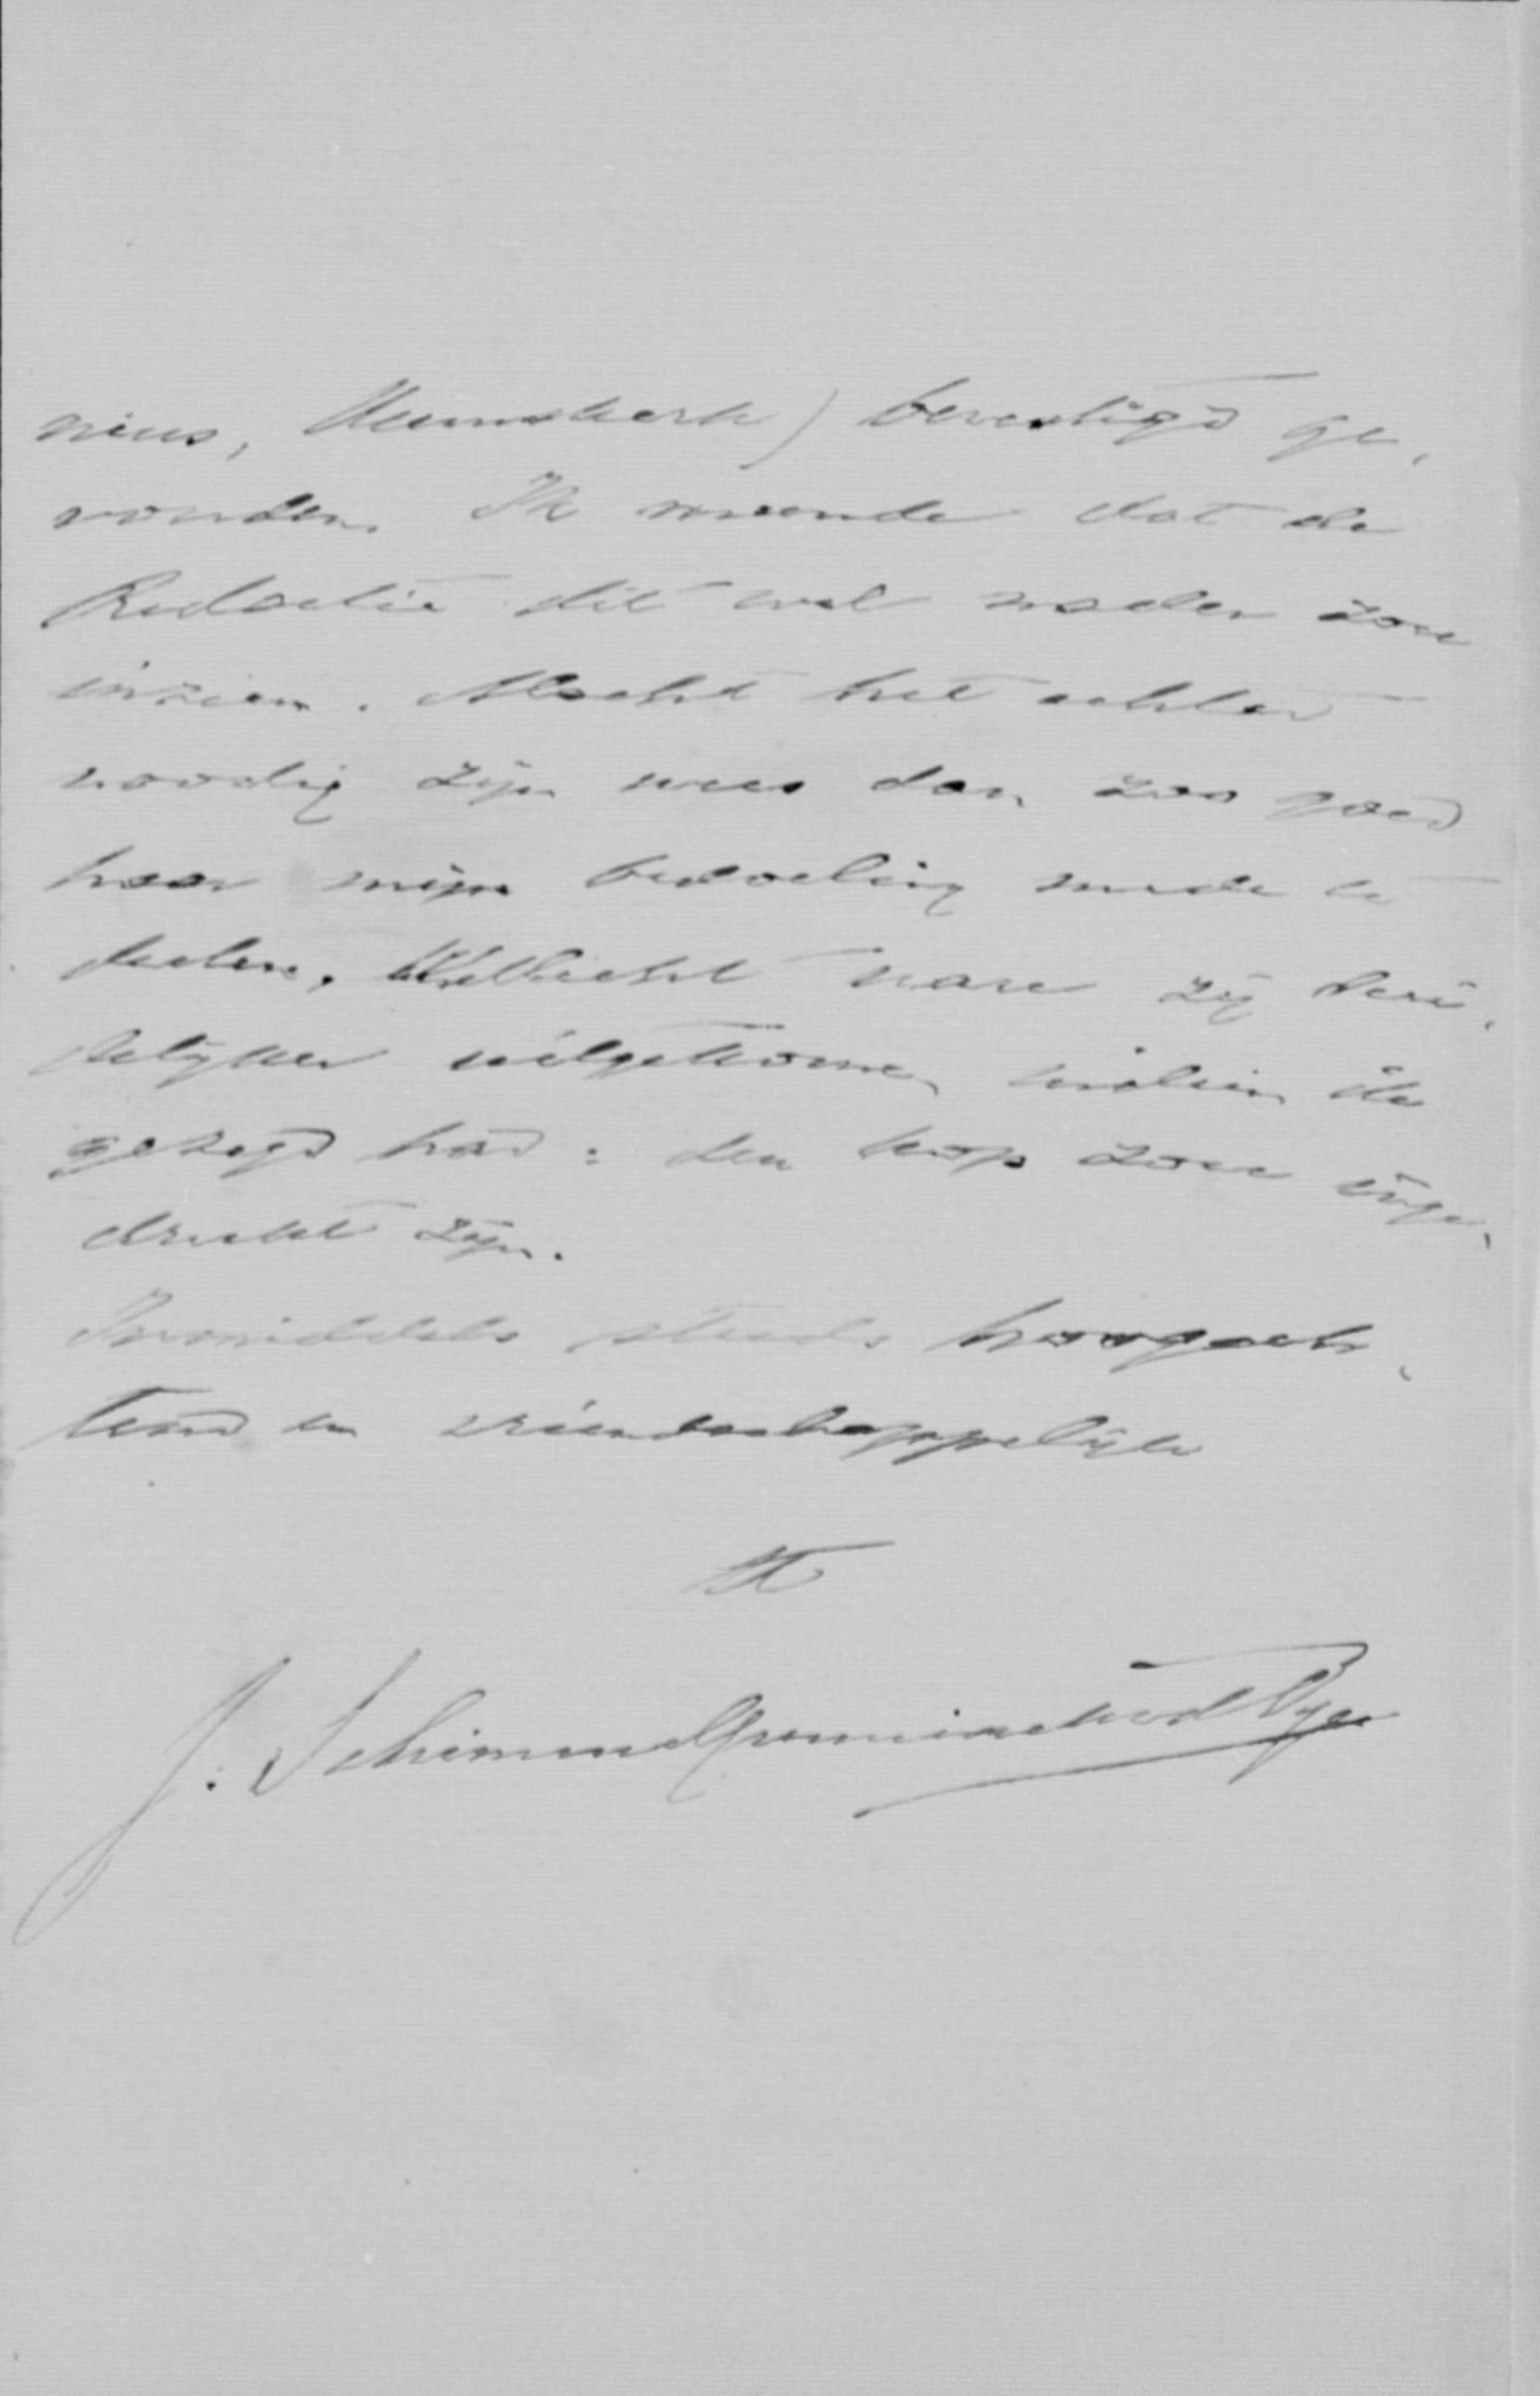 nius, Heemskerk) bevestigd ge-
vonden. Ik meende dat de
Redactie dit wel nader zou
inzien. Mocht het echter
noodig zijn wees dan zoo goed
haar mijn bedoeling mede te
deelen. Wellicht ware zij dui-
delijker uitgekomen, indien ik
gezegd had: den kop zou inge-
drukt zijn.
Inmiddels steeds hoogach-
tend en vriendschappelijk
tt
J. Schimmelpenninck vd Oye